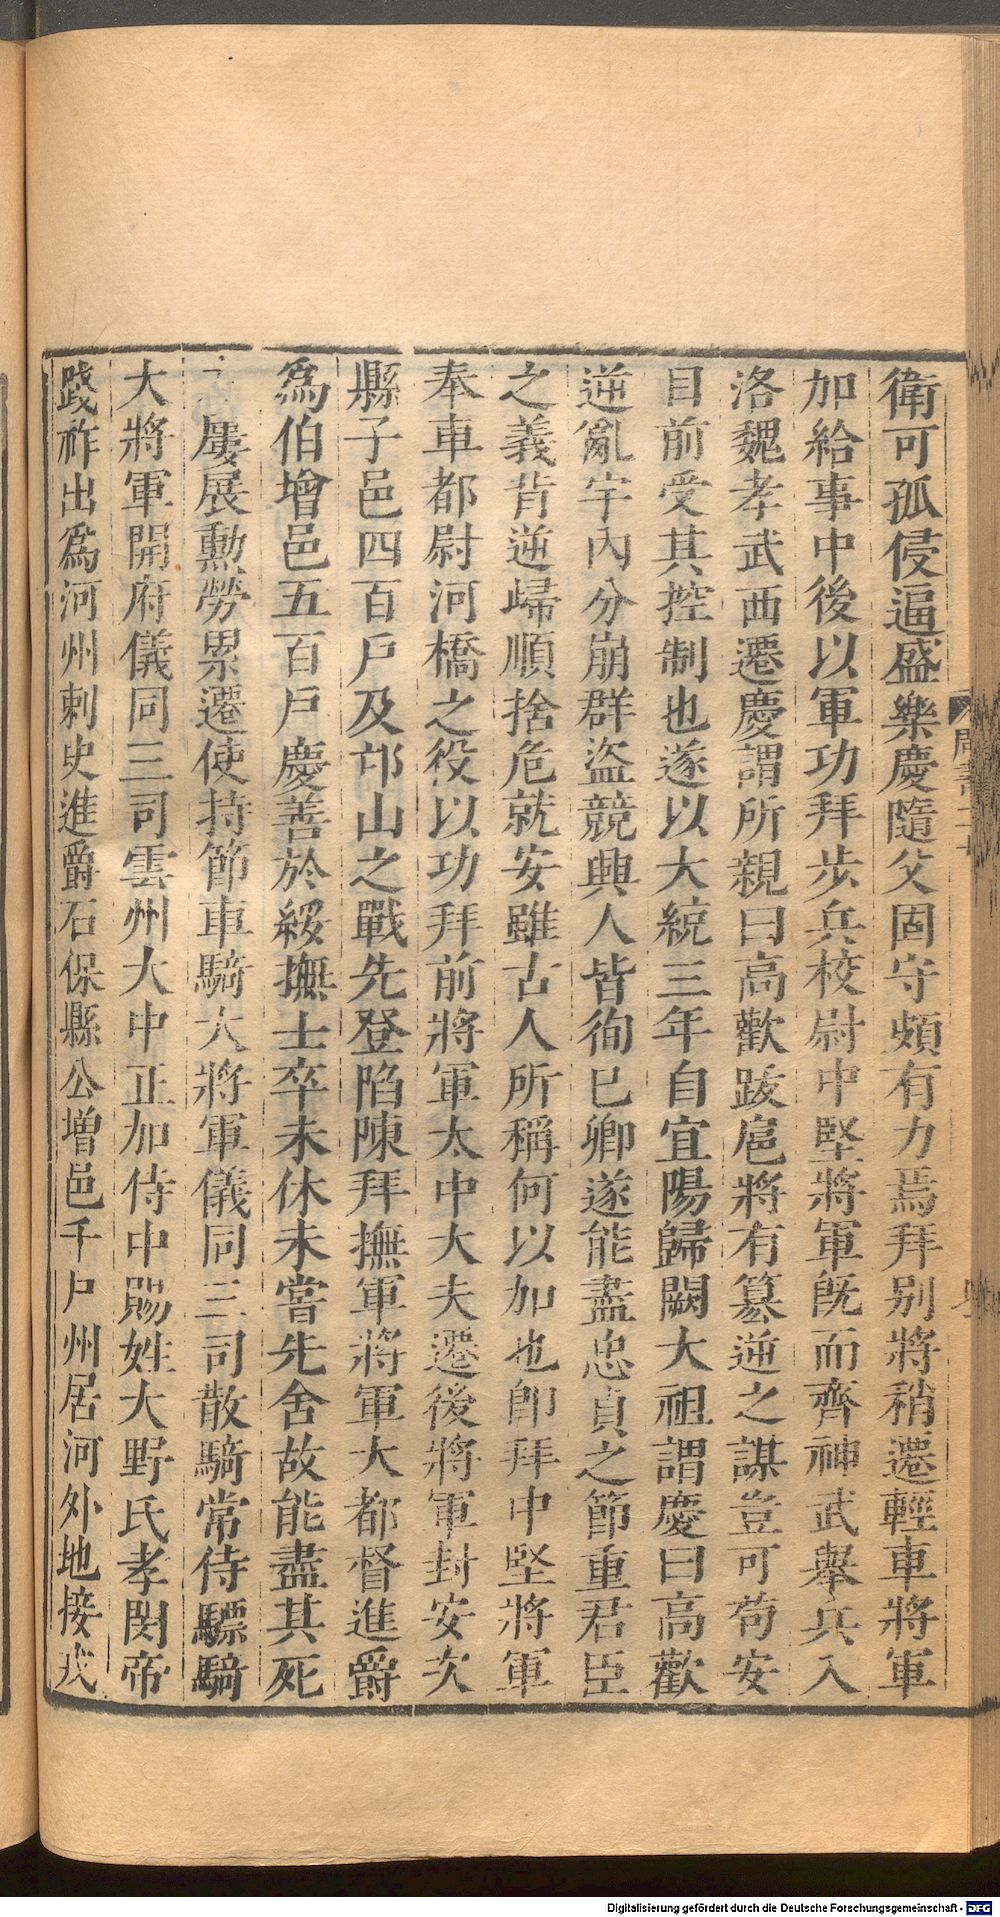 衛可孤侵逼盛樂慶隨父固守頗有力焉拜别將稍遷輕車將軍
加給事中後以軍功拜步兵校尉中堅將軍旣而齊神武舉兵入
洛魏孝武西遷慶謂所親曰高歡跋扈將有篡逆之謀豈可苟安
目前受其控制也遂以大統三年自宜陽歸闕大祖謂慶曰高歡
逆亂宇內分崩群盜競興人皆徇已卿遂能盡忠貞之節重君臣
之義背逆歸順捨危就安雖古人所稱何以加也卽拜中堅將軍
奉車都尉河橋之役以功拜前將軍太中大夫遷後將軍封安次
縣子邑四百戶及邙山之戰先登陷陳拜撫軍將軍大都督進爵
爲伯增邑五百戶慶善於綏撫士卒未休未嘗先舍故能盡其死
屢展勳勞累遷使持節車騎大將軍儀同三司散騎常侍驃騎
大將軍開府儀同三司雲州大中正加侍中賜姓大野氏孝閔帝
踐祚出爲河州刺史進爵石保縣公增邑千戶州居河外地接戎
Digitalisierung gefördert durch die Deutsche Forschungsgemeinschaft - DFG